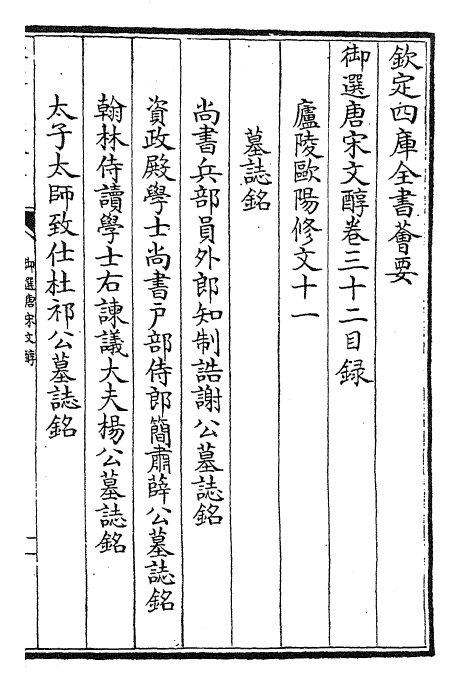 欽定四庫全書薈要
御選唐宋文醇卷三十二目録
廬陵歐陽修文十一
墓誌銘
尚書兵部員外郎知制誥謝公墓誌銘
資政殿學士尚書戸部侍郎簡肅薛公墓誌銘
翰林侍讀學士右諫議大夫楊公墓誌銘
太子太師致仕杜祁公墓誌銘
御選唐宋文醇